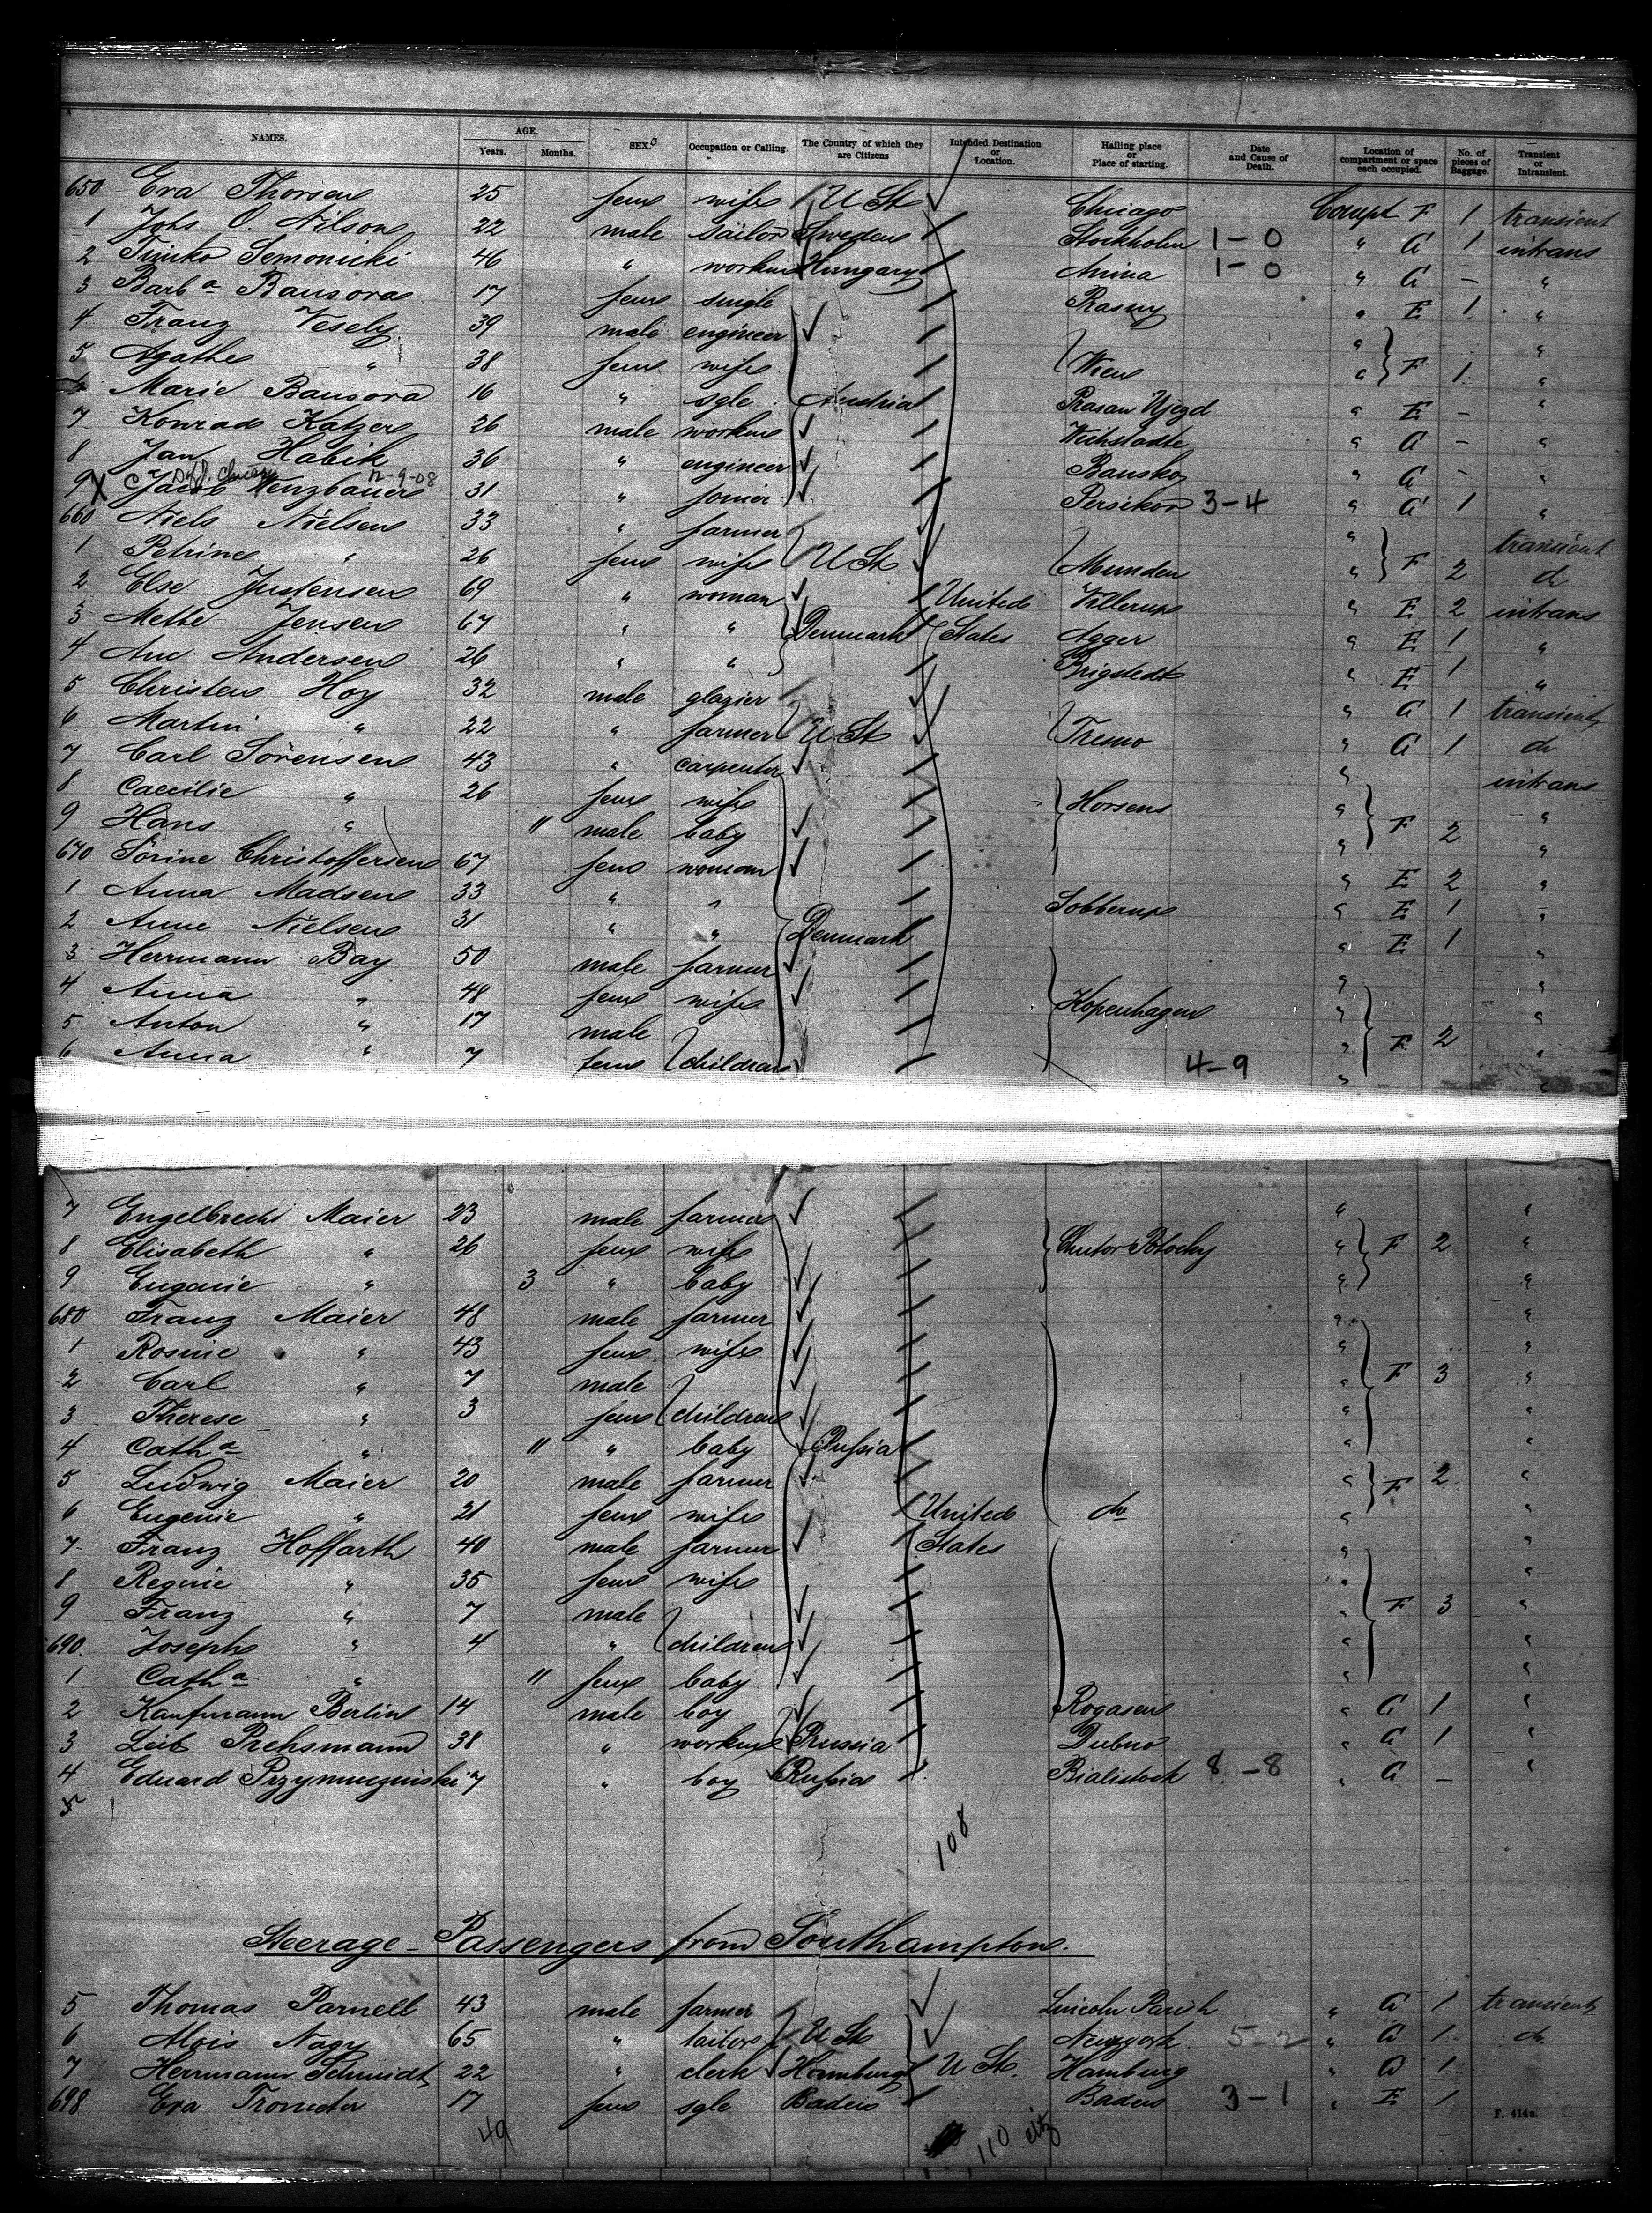 NAMES. AGE. Years. Months. SEX. Occupation or Calling. The Country of which they are Citizens Intended Destination or Location. Hailing place or Place of starting. Date and Cause of Death. Location of compartment or space each occupied. No. of pieces of Baggage. Transient or Intransient.
650 Eva Thorsen 25 fem wife U St Chicago Compt F 1 transient
1 Johs O. Nilson 22 male sailor Sweden Stockholm 1-0 " G 1 intrans
2 Timko Semonicki 46 " workm Hungary Anina 1-0 " G - "
3 Barba Bansora 17 fem single Prasny " E 1 "
4 Franz Vesely 39 male engineer " "
5 Agathe " 38 fem wife Wien " F 1 "
6 Marie Bansora 16 " sgle Austria Prasan Ujezd " E - "
7 Konrad Katzer 26 male workm Wichstadtl " G - "
8 Jan Habik 36 " engineer Bansko " G - "
12-9-08
9 X Jacob Wenzbauer 31 " joiner 3-4 " G 1 "
660 Niels Nielsen 33 " farmer " transient
1 Petrine " 26 fem wife U St Munden " F 2 do
2 Else Justensen 69 " woman United Villerup " E 2 intrans
3 Mette Jensen 67 " " Denmark States Agger " E 1 "
4 Ane Andersen 26 " " Brigstedt " E 1 "
5 Christen Hoy 32 male glazier " G 1 transient
6 Martin " 22 " farmer U St Tremo " G 1 do
7 Carl Sörensen 43 " carpenter " intrans
8 Caecilie " 26 fem wife Horsens " "
9 Hans " 11 male baby " F 2 "
670 Sörine Christoffersen 67 fem woman " E 2 "
1 Anna Madsen 33 " " Sobberup " E 1 "
2 Anne Nielsen 31 " " Denmark " E 1 "
3 Herrmann Bay 50 male farmer " "
4 Anna " 48 fem wife Kopenhagen " "
5 Anton " 17 male " F 2 "
6 Anna " 7 fem children 4-9 " "
7 Engelbrecht Maier 23 male farmer " "
8 Elisabeth " 26 fem wife Chutor Potocky " F 2 "
9 Eugenie " 3 " baby " "
680 Franz Maier 48 male farmer " "
1 Rosine " 43 fem wife " "
2 Carl " 7 male " F 3 "
3 Therese " 3 fem children " "
4 Catha " 11 " baby Russia " "
5 Ludwig Maier 20 male farmer " F 2 "
6 Eugenie " 21 fem wife United do " "
7 Franz Hoffarth 40 male farmer States " "
8 Regine " 35 fem wife " "
9 Franz " 7 male " F 3 "
690. Joseph " 4 " children " "
1 Catha " 11 fem baby " "
2 Kaufmann Berlin 14 male boy Rogasen " G 1 "
3 Leib Prehsmann 38 " workm Prussia Dubno " G 1 "
4 Eduard Przymuszinski 7 " boy Russia Bialistock 8-8 " G - "
5
108
Steerage-Passengers from Southampton.
5 Thomas Parnell 43 male farmer Lincoln Parish " G 1 transient
6 Alois Nagy 65 " tailor U St Newyork 5-2 " G 1 do
7 Herrmann Schmidt 22 " clerk Hamburg U St. Hamburg " G 1
698 Eva Trometer 17 fem sgle Baden Baden 3-1 " E 1
F. 414a.
49 110 citz